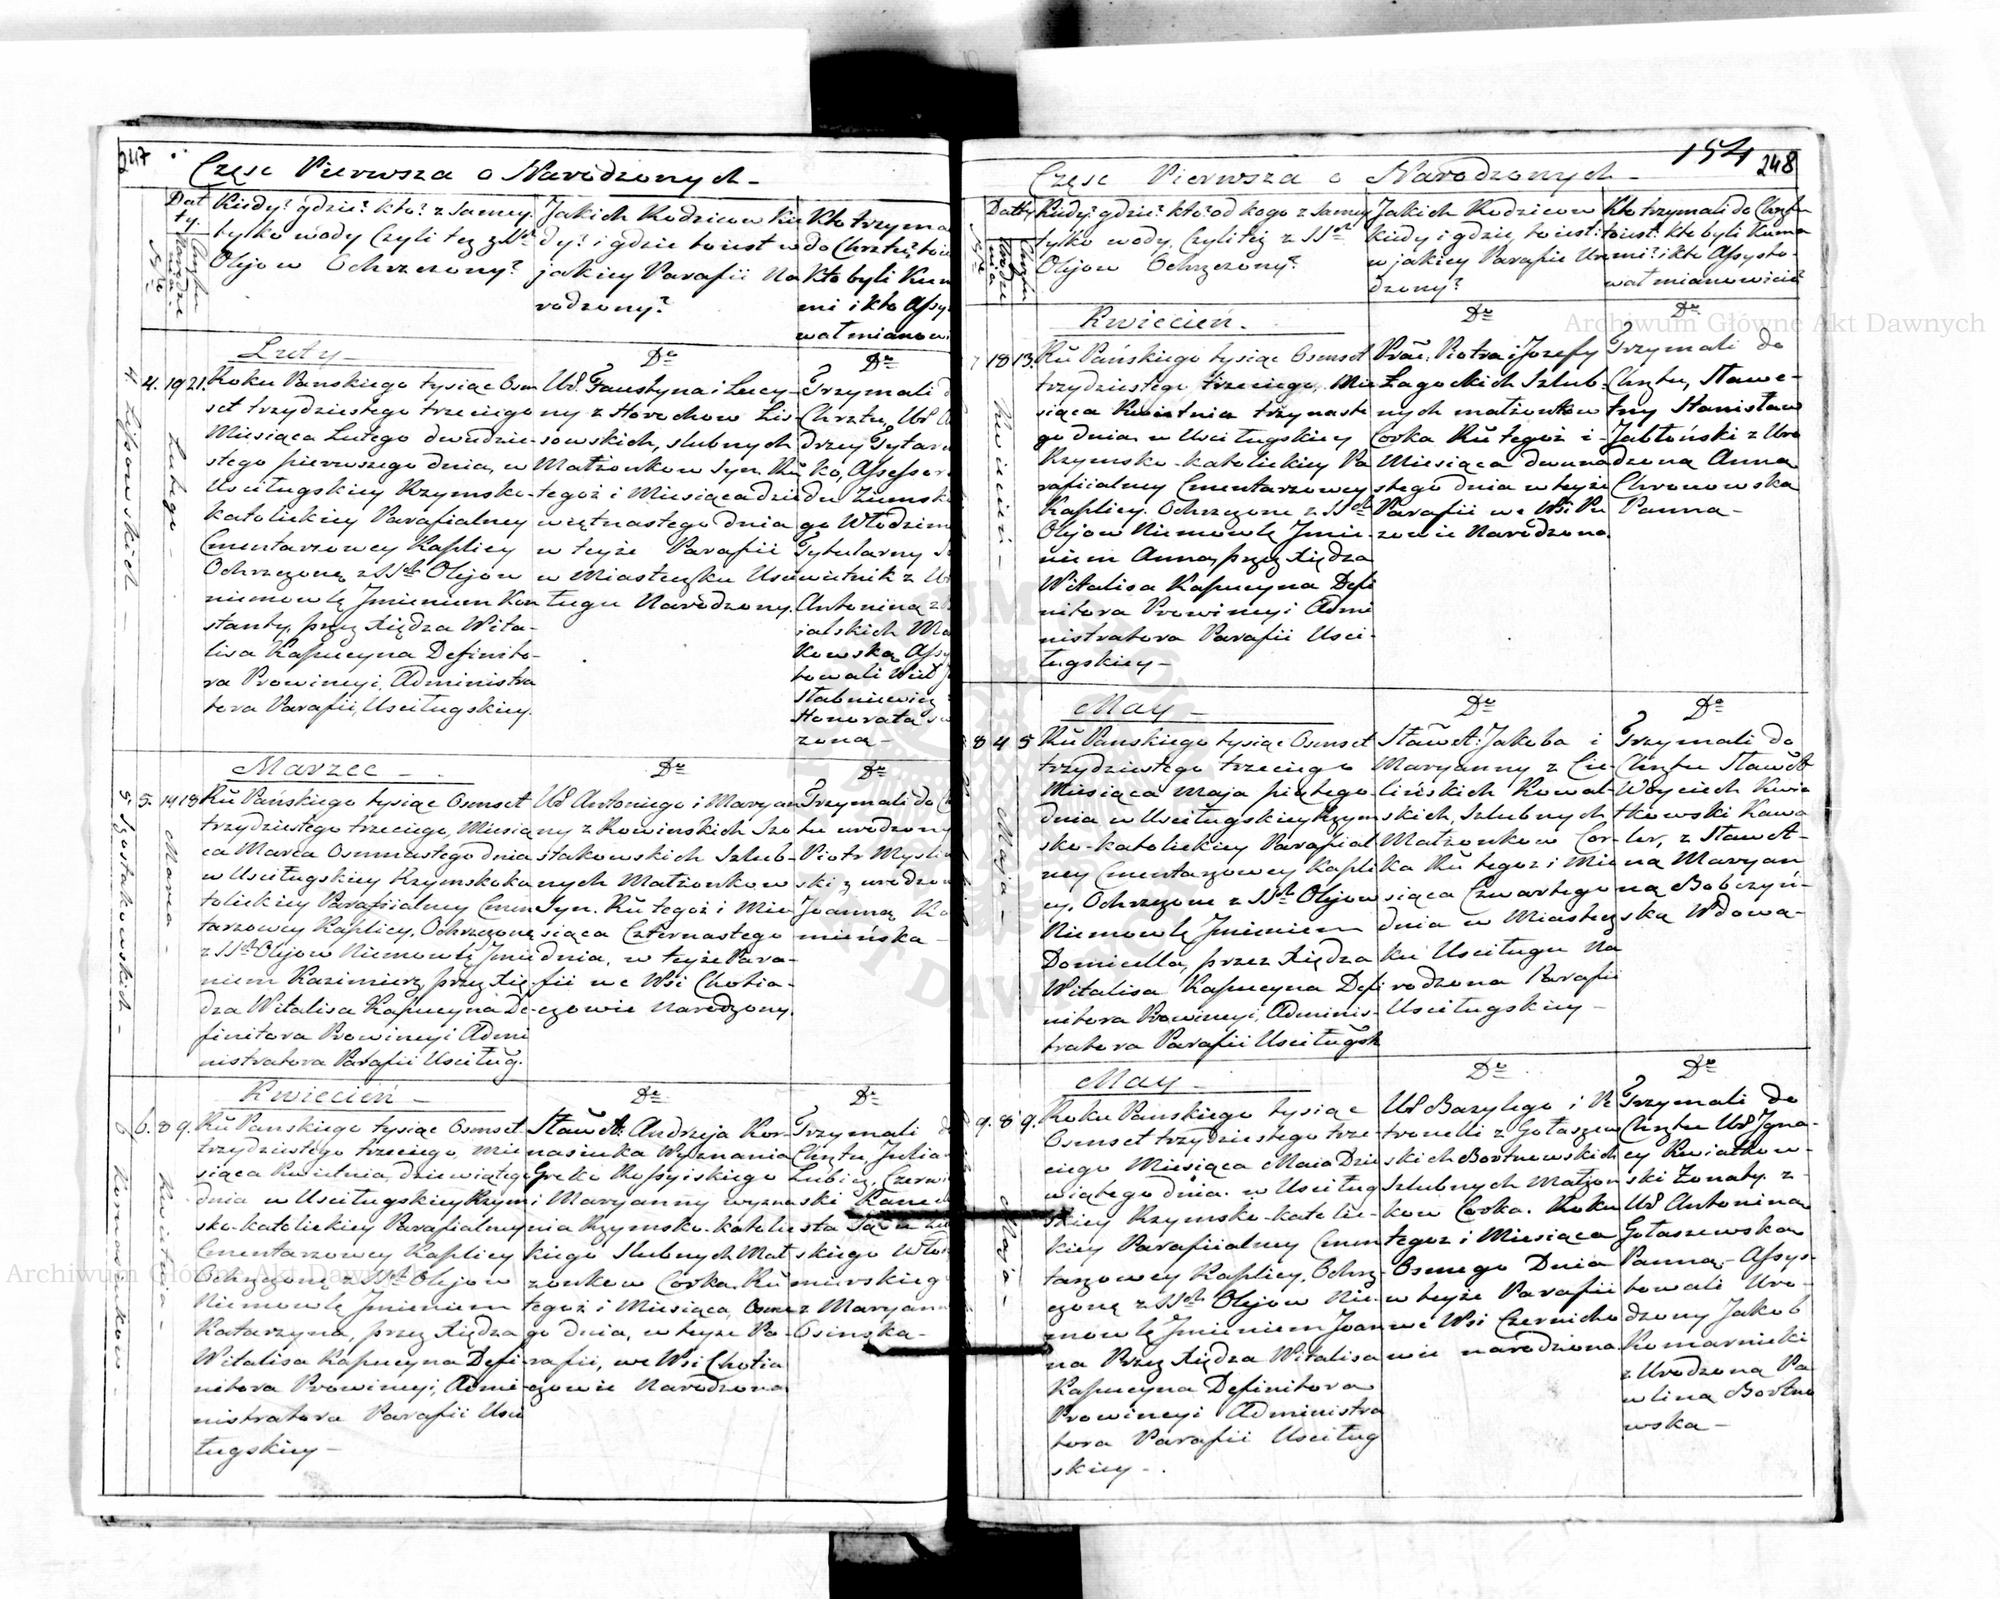 247
Część Pierwsza o Narodzonych
Daty.
Kiedy? gdzie? kto? z samey
tylko wody Czyli też z SSch
Olejow Ochrzczony?
Jakich Rodzicow kie
dy? i gdzie to iest w
jakiey Parafii Na
rodzony?
Kto trzyma
do Chrztu? to ie
Kto byli Kum
mi i kto Assy
wał mianow
Luty
4. 4. 19 21.
Lutego
Lissowskich
Roku Pańskiego tysiąc Osm
set trzydziestego trzeciego
Miesiąca Lutego dwudzie-
stego pierwszego dnia, w
Uściługskiey Rzymsko-
katolickiey Parafialney
Cmentarzowey Kaplicy
Ochrzczone z SSch Olejow
niemowlę Jmieniem Kon
stanty, przez Xiędza Wita-
lisa Kapucyna Definito-
ra Prowincyi, Administra
tora Parafii, Uściługskiey.
Dto
Ur. Faustyna i Lucy-
ny z Horochow Lis-
sowskich, slubnych
Małżonkow Syn. Ru
tegoż i Miesiąca dzie
więtnastego dnia
w teyże Parafii
w Miasteczku Uści
ługu Narodzony.
Dto
Trzymali d
Chrztu, Ur
drzey Tytar
ko, Assessor
du Ziemsk
go Włodzim
Tytularny
wietnik z Ur
Antoniną z
ialskich Ma
kowską Assy
towali Wiel
Stabniewicz
Honorata
zona
Marzec
5. 5. 14 18.
Marca
Szostakowskich
Ru Pańskiego tysiąc Osmset
trzydziestego trzeciego, Miesią
ca Marca Osmnastego dnia
w Uściługskiey Rzymskoka
tolickiey Parafiialney Cmen
tarzowey Kaplicy, Ochrzczone
z SSch Olejow Niemowlę Jmie
niem Kazimierz, przez Xię
dza Witalisa Kapucyna De
finitora Prowincyi Admi
nistratora Parafii Uściług.
Dto
Ur Antoniego i Maryan
ny z Rowinskich Szo
stakowskich Szlub-
nych Małżonkow
Syn. Ru tegoż i Mie
siąca Czternastego
dnia, w teyże Para-
fii we Wsi Chotia-
czowie Narodzony.
Dto
Trzymali do C
tu urodzony
Piotr Mysli
ski z urodzo
Joanną Ko
mieńska
Kwiecień
6 6. 8 9.
Kwietnia
Kornasiukow
Ru Pańskiego tysiąc Osmset
trzydziestego trzeciego, Mie
siąca Kwietnia, dziewiątego
dnia w Uściługskiey Rzym
sko-katolickiey Parafialney
Cmentarzowey Kaplicy
Ochrzczone z SSch Olejow
Niemowlę Jmieniem
Katarzyna, przez Xiędza
Witalisa Kapucyna Defi
nitora Prowincyi, Admi
nistratora Parafii Uści
ługskiey
Dto
Sławet: Andrzeja Kor-
nasiuka Wyznania
Greko Rossyiskiego
i Maryanny wyzna
nia Rzymsko-katolic
kiego Slubnych Mał
żonkow Corka. Ru
tegoż i Miesiąca, Osme
go dnia, w teyże Pa-
rafii, we Wsi Chotia
czowie Narodzona
Dto
Trzymali d
Chrztu, Julia
Lubicz, Czerwi
ski Kance
sta
skiego Wło
mirskieg
z Maryan
Osinska
154
248
Część Pierwsza o Narodzonych
Daty
Kiedy? gdzie? kto? od kogo z samey
tylko wody, Czyli też z SSch
Olejow Ochrzczony?
Jakich Rodzicow
kiedy i gdzie, to iest:
w jakiey Parafii Uro
dzony?
Kto trzymali do Chrztu
to iest: kto byli Kuma
mi? i kto Assysto-
wał mianowicie?
Kwiecień
7 18 13.
Kwiecień
Ru Pańskiego tysiąc Osmset
trzydziestego trzeciego, Mie
siąca Kwietnia trzynaste
go dnia w Uściługskiey
Rzymsko-katolickiey Pa
rafiialney Cmentarzowey
Kaplicy. Ochrzczone z SSch
Olejow Niemowlę Jmie-
niem Anna, przez Xiędza
Witalisa Kapucyna Defi
nitora Prowincyi Admi
nistratora Parafii Uści-
ługskiey
Dto
Prac. Piotra i Jozefy
Łagockich Szlub-
nych małżonkow
Corka Ru tegoż i
Miesiąca dwuna
stego dnia w teyże
Parafii we Wsi Pu
zowie Narodzona
Dto
Trzymali do
Chrztu, Sławe-
tny Stanisław
Jabłoński z Uro
dzoną Anna
Chronowska
Panna
May
8 4 5
Maja
Ru Pańskiego tysiąc Osmset
trzydziestego trzeciego
Miesiąca Maja piątego
dnia w Uściługskiey Rzym
sko-katolickiey Parafial
ney Cmentarzowey Kapli
cy, Ochrzczone z SSch Olejow
Niemowlę Jmieniem
Domicella, przez Xiędza
Witalisa Kapucyna Defi
nitora Prowincyi, Adminis-
tratora Parafii Uściługsk
Dto
Sławet: Jakoba i
Maryanny z Cie-
lińskich Kowal-
skich, Szlubnych
Małżonkow Cor-
ka Ru tegoż i Mie
siąca Czwartego
dnia w Miastecz
ku Uściługu Na
rodzona Parafii
Uściługskiey
Dto
Trzymali do
Chrztu Sławet
Woyciech Kwia
tkowski Kawa
ler, z Sławet-
ną Maryan
ną Bobczyń-
ską Wdowa
May
9. 8 9.
Maja
Roku Pańskiego tysiąc
Osmset trzydziestego trze-
ciego Miesiąca Maia Dzie
wiątego dnia. w Uściług
skiey Rzymsko-katolic-
kiey Parafiialney Cmen
tarzowey Kaplicy, Ochrz-
czone z SSch Olejow Nie-
mowlę Jmieniem Joan
na Przez Xiędza Witalisa
Kapucyna Definitora
Prowincyi Administra
tora Parafii Uściług
skiey
Dto
Ur Bazylego i Pe
tronelli z Gołaszew
skich Bortnowskich
Szlubnych Małżon
kow Corka. Roku
tegoż i Miesiąca
Osmego Dnia
w teyże Parafii
we Wsi Czernicho
wie narodzona
Dto
Trzymali do
Chrztu Ur Igna-
cy Kwiatkow-
ski Żonaty. z
Ur Antonina
Gołaszewska
Panną, Assys-
towali Uro-
dzony Jakob
Komarnicki
z Urodzoną Pa
wliną Bortno
wska
Archiwum Główne Akt Dawnych
Archiwum Główne Akt Dawnych